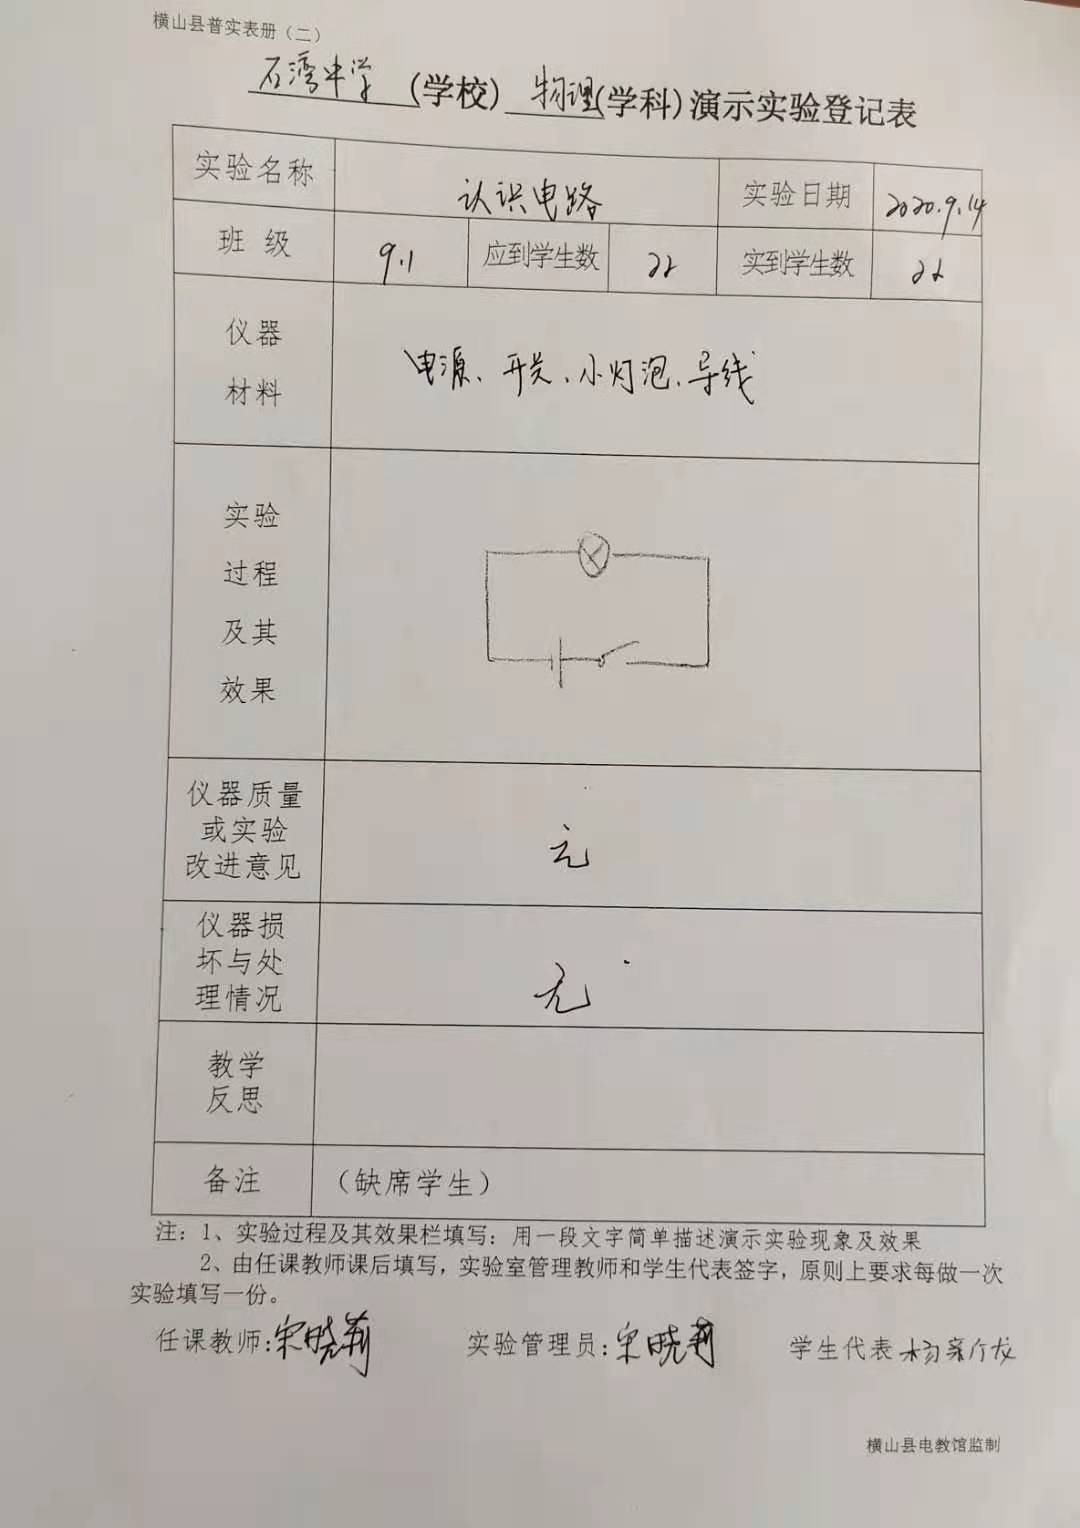 横山县普实表册（二）
石湾中学（学校）物理（学科）演示实验登记表
实验名称 认识电路 实验日期 2020.9.14
班级 9.1 应到学生数 22 实到学生数 22
仪器
材料
电源、开关、小灯泡、导线
实验
过程
及其
效果
仪器质量
或实验
改进意见
无
仪器损
坏与处
理情况
无
教学
反思
备注 （缺席学生）
注：1、实验过程及其效果栏填写：用一段文字简单描述演示实验现象及效果
2、由任课教师课后填写，实验室管理教师和学生代表签字，原则上要求每做一次
实验填写一份。
任课教师：宋晓莉 实验管理员：宋晓莉 学生代表
横山县电教馆监制